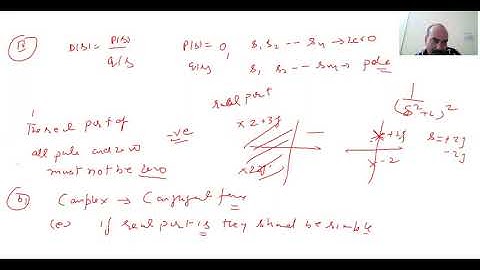 D(s) = P(s)/q(s) P(s) = 0, s, s2 --- sn → zero
q(s) s, s2 --- sm → pole
real part
1/(s²+2)²
The real part of -ve
all pole and zero
must not be zero
x 2+3j
x 2
x+2j s=+2j
x-2 -2j
(b) Complex → Conjugate
(c) if real part is they should be simple